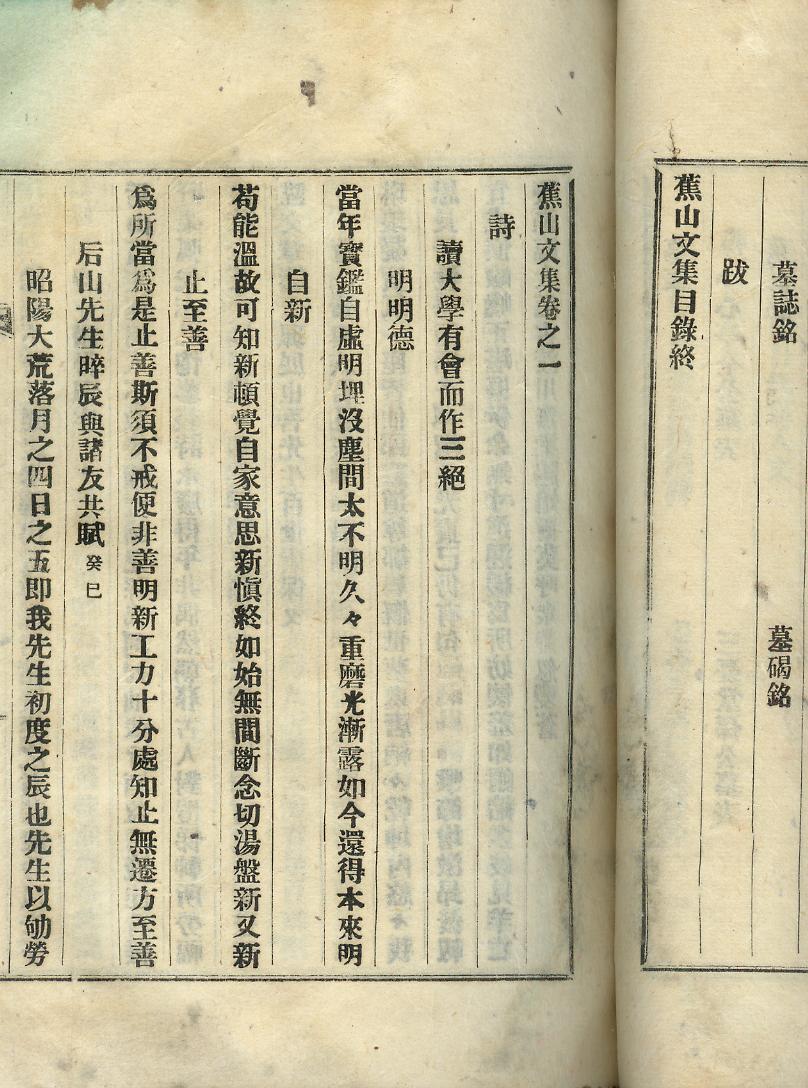 墓誌銘 墓碣銘
跋
蕉山文集目錄終
蕉山文集卷之一
詩
讀大學有會而作三絕
明明德
當年寶鑑自虛明埋沒塵間太不明久々重磨光漸露如今還得本來明
自新
苟能溫故可知新頓覺自家意思新愼終如始無間斷念切湯盤新又新
止至善
爲所當爲是止善斯須不戒便非善明新工力十分處知止無遷方至善
后山先生晬辰與諸友共賦 癸巳
昭陽大荒落月之四日之五即我先生初度之辰也先生以劬勞